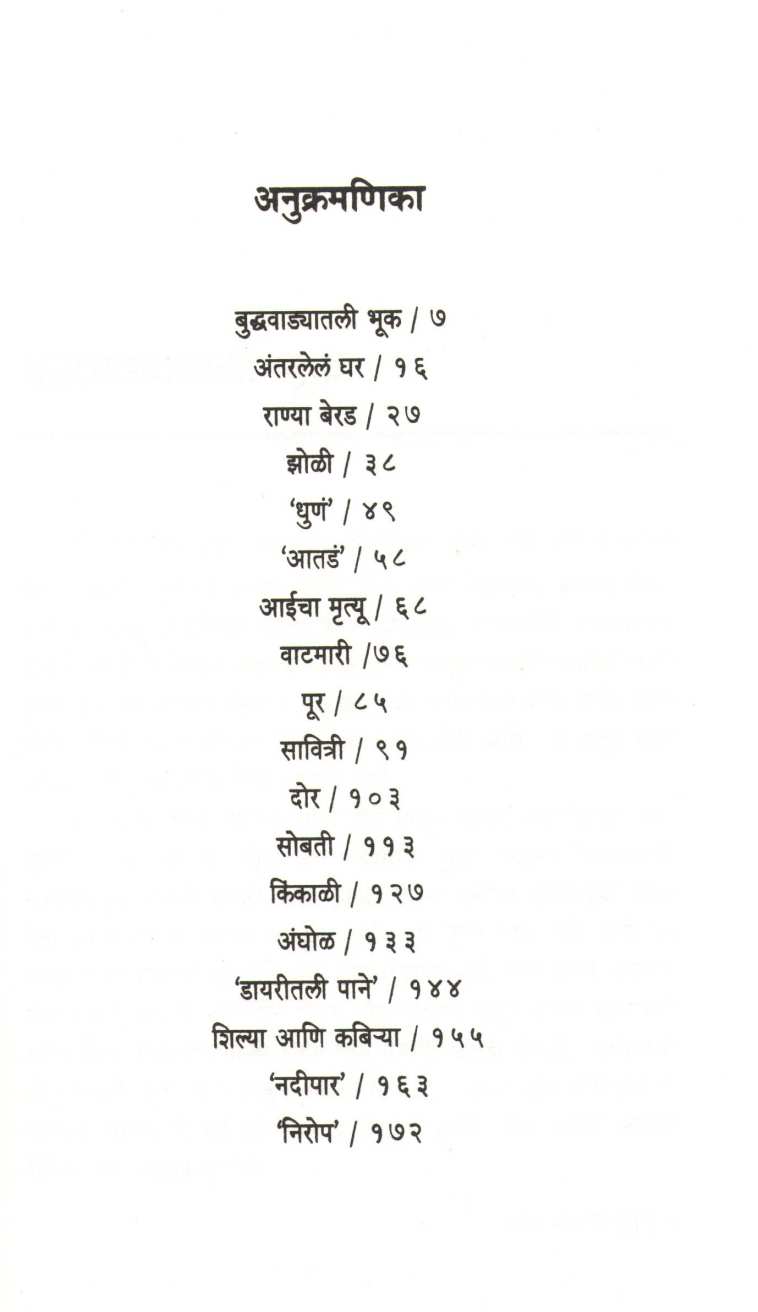 अनुक्रमणिका
बुद्धवाड्यातली भूक / ७
अंतरलेलं घर / १६
राण्या बेरड / २७
झोळी / ३८
‘धुणं’ / ४९
‘आतडं’ / ५८
आईचा मृत्यू / ६८
वाटमारी /७६
पूर / ८५
सावित्री / ९१
दोर / १०३
सोबती / ११३
किंकाळी / १२७
अंघोळ / १३३
‘डायरीतली पाने’ / १४४
शिल्या आणि कबिऱ्या / १५५
‘नदीपार’ / १६३
‘निरोप’ / १७२